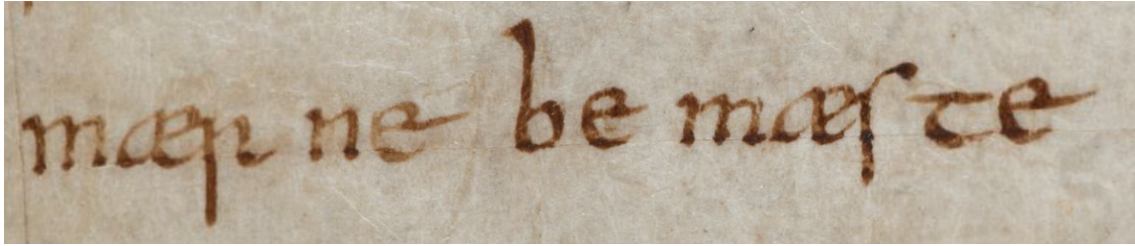 mærne be mæste